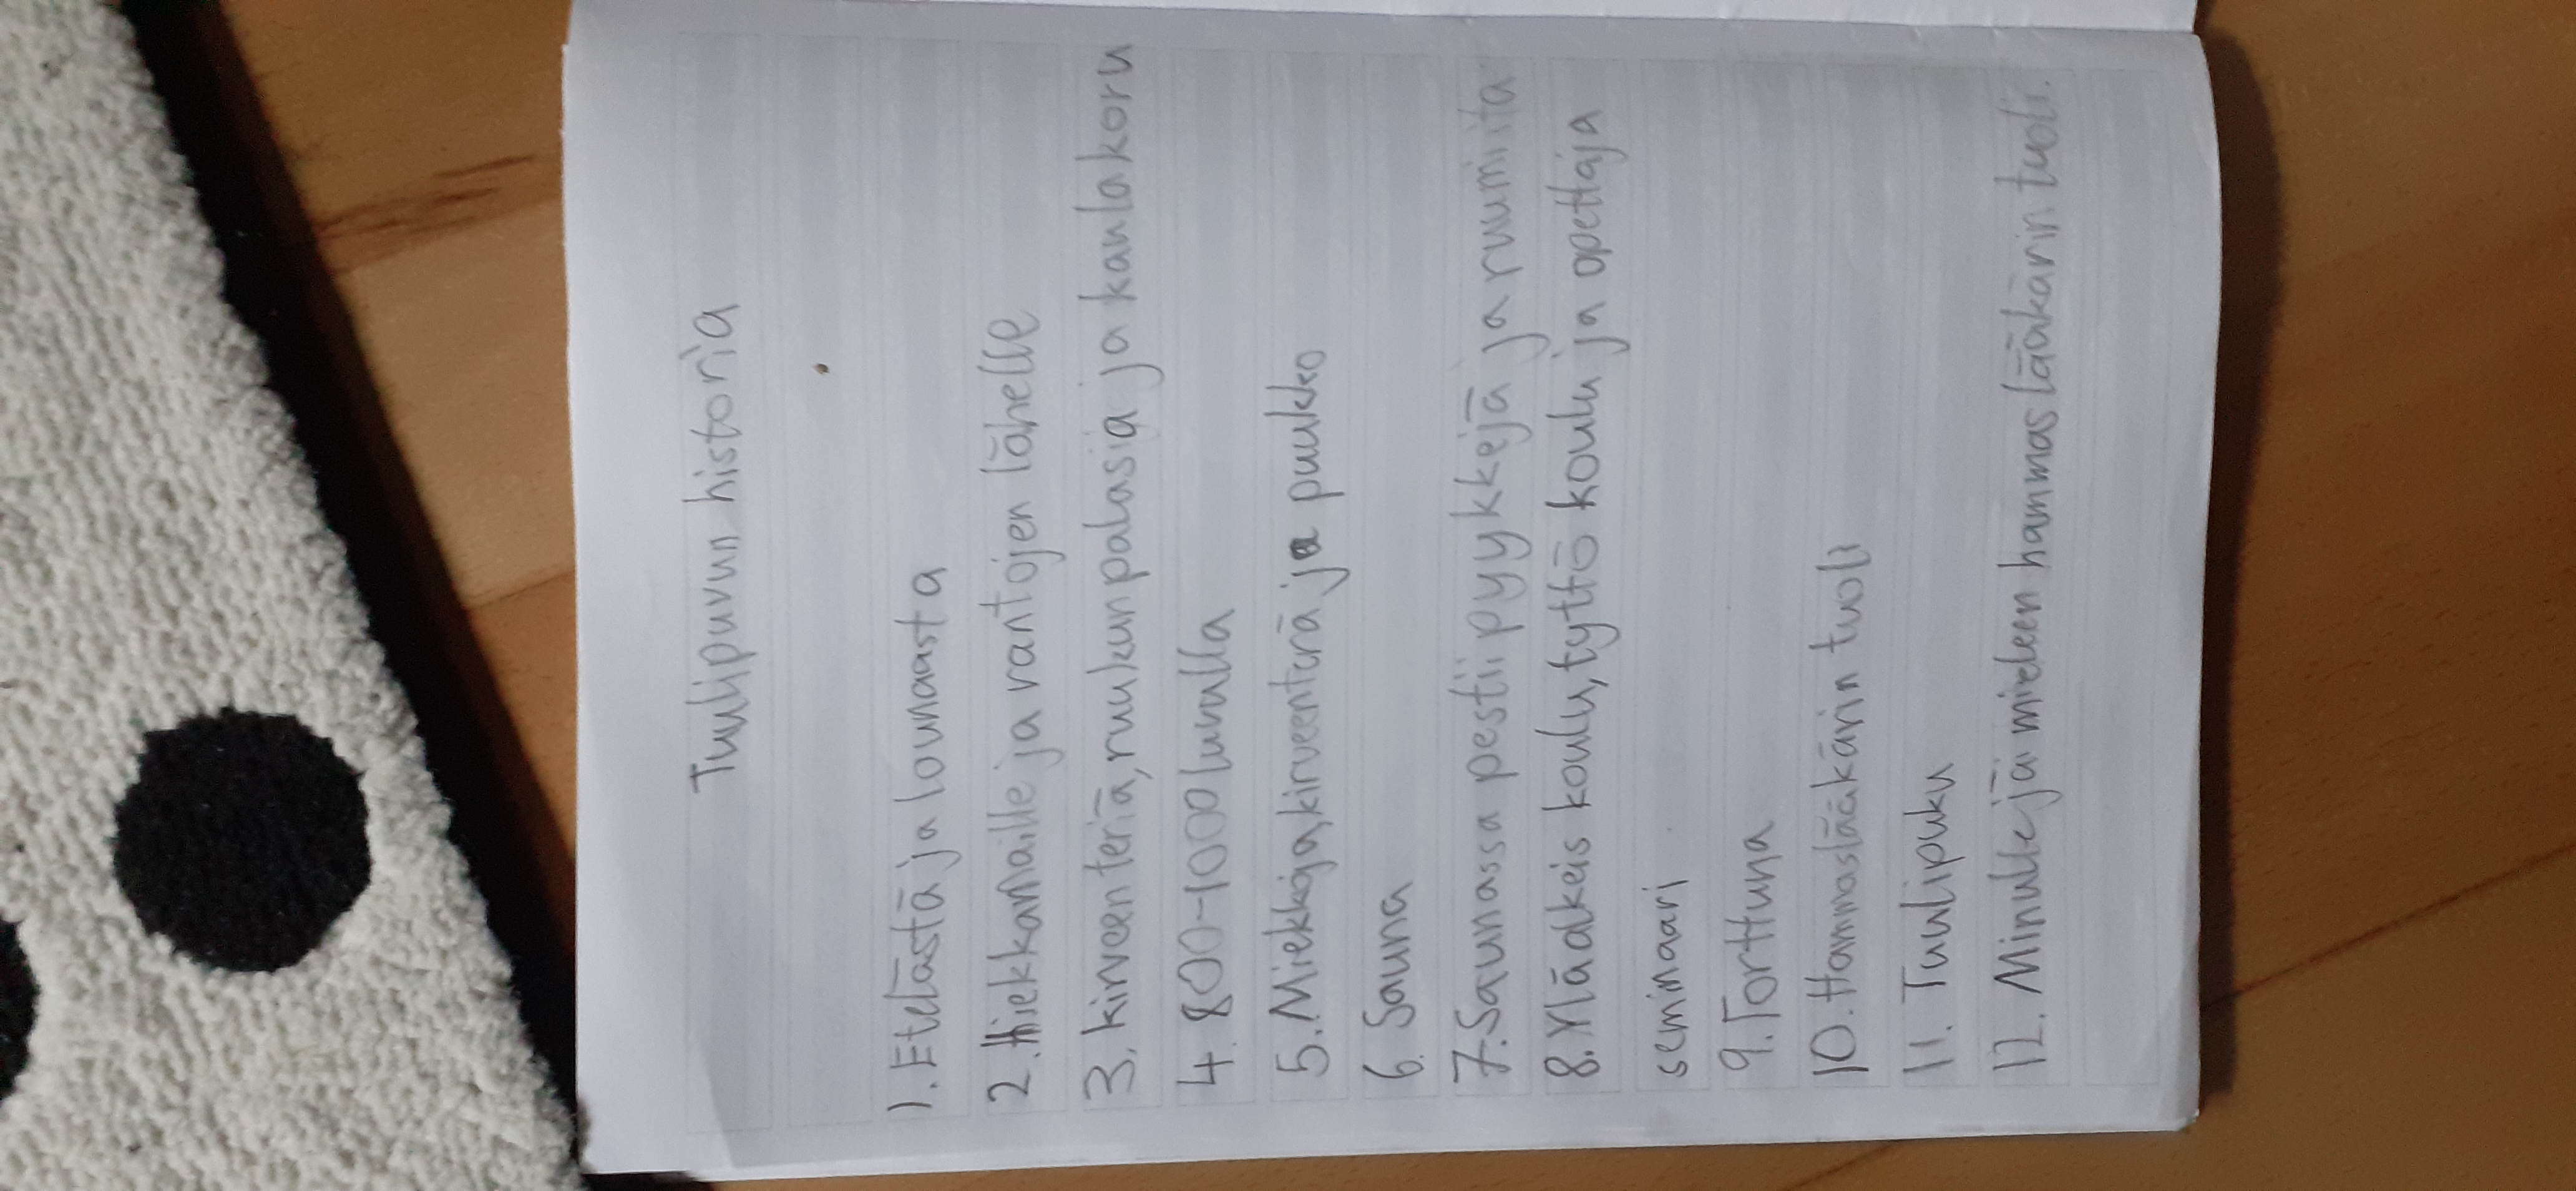 Tuulipuvun historia
1. Etelästä ja lounaasta
2. Hiekkamaille ja rantojen lähelle
3. kirveen teriä, ruukun palasia ja kaulakoru
4. 800-1000 luvulla
5. Miekkoja, kirveenterä ja puukko
6. Sauna
7. Saunassa pestii pyykkejä ja ruumiita
8. Yläalkeis koulu, tyttö koulu ja opettaja
seminaari
9. Torttuna
10. Hammaslääkärin tuoli
11. Tuulipuku
12. Minulle jäi mieleen hammaslääkärin tuoli.